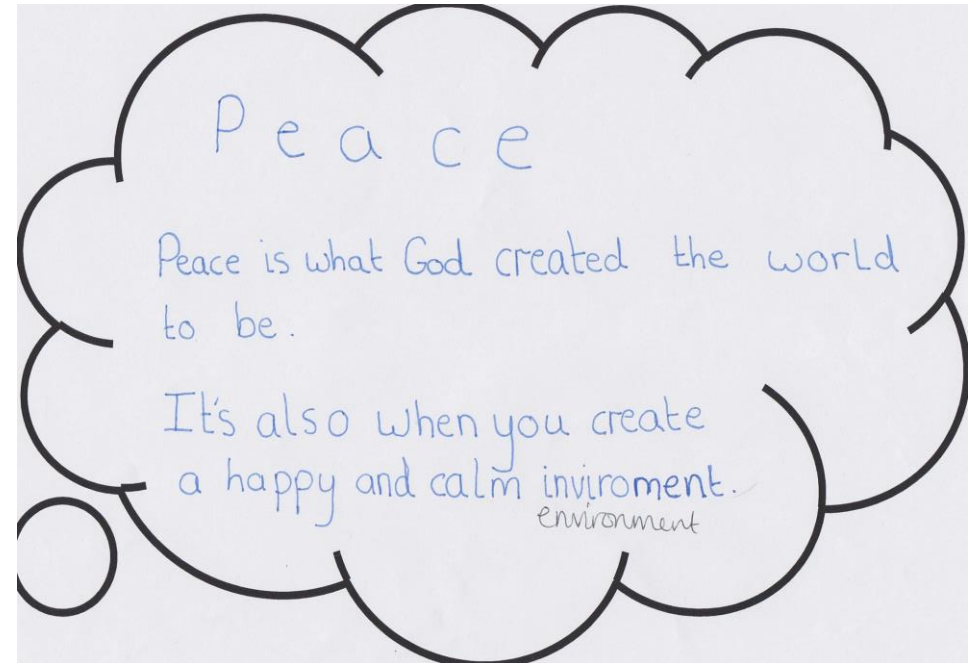 Peace
Peace is what God created the world
to be.
It's also when you create
a happy and calm inviroment.
environment